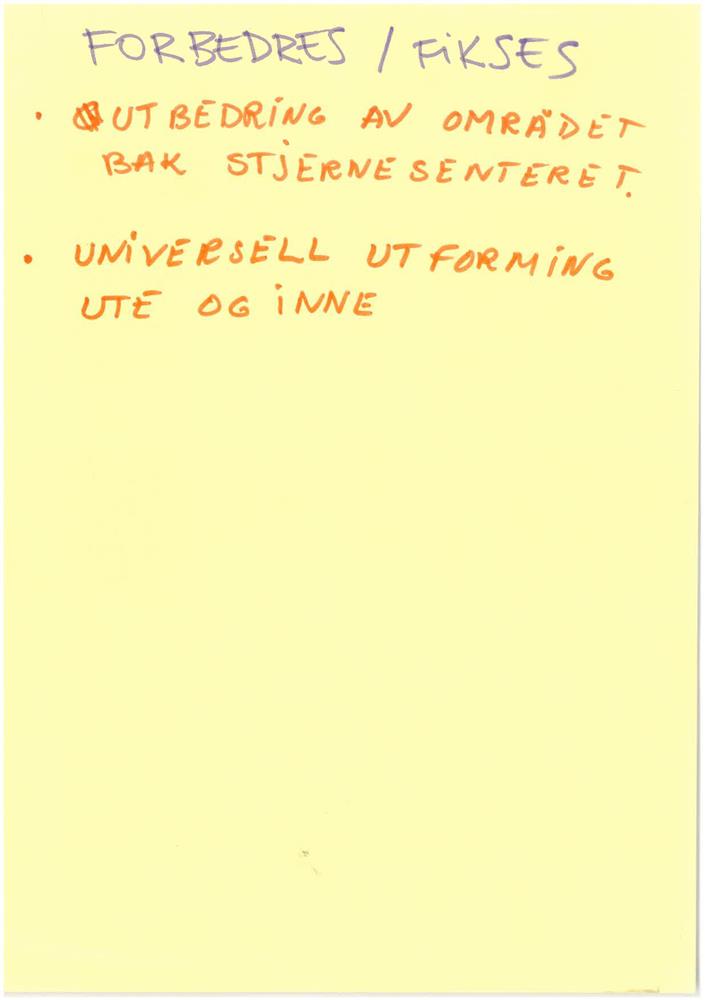 FORBEDRES / FIKSES
• UTBEDRING AV OMRÅDET
BAK STJERNESENTERET.
• UNIVERSELL UTFORMING
UTE OG INNE